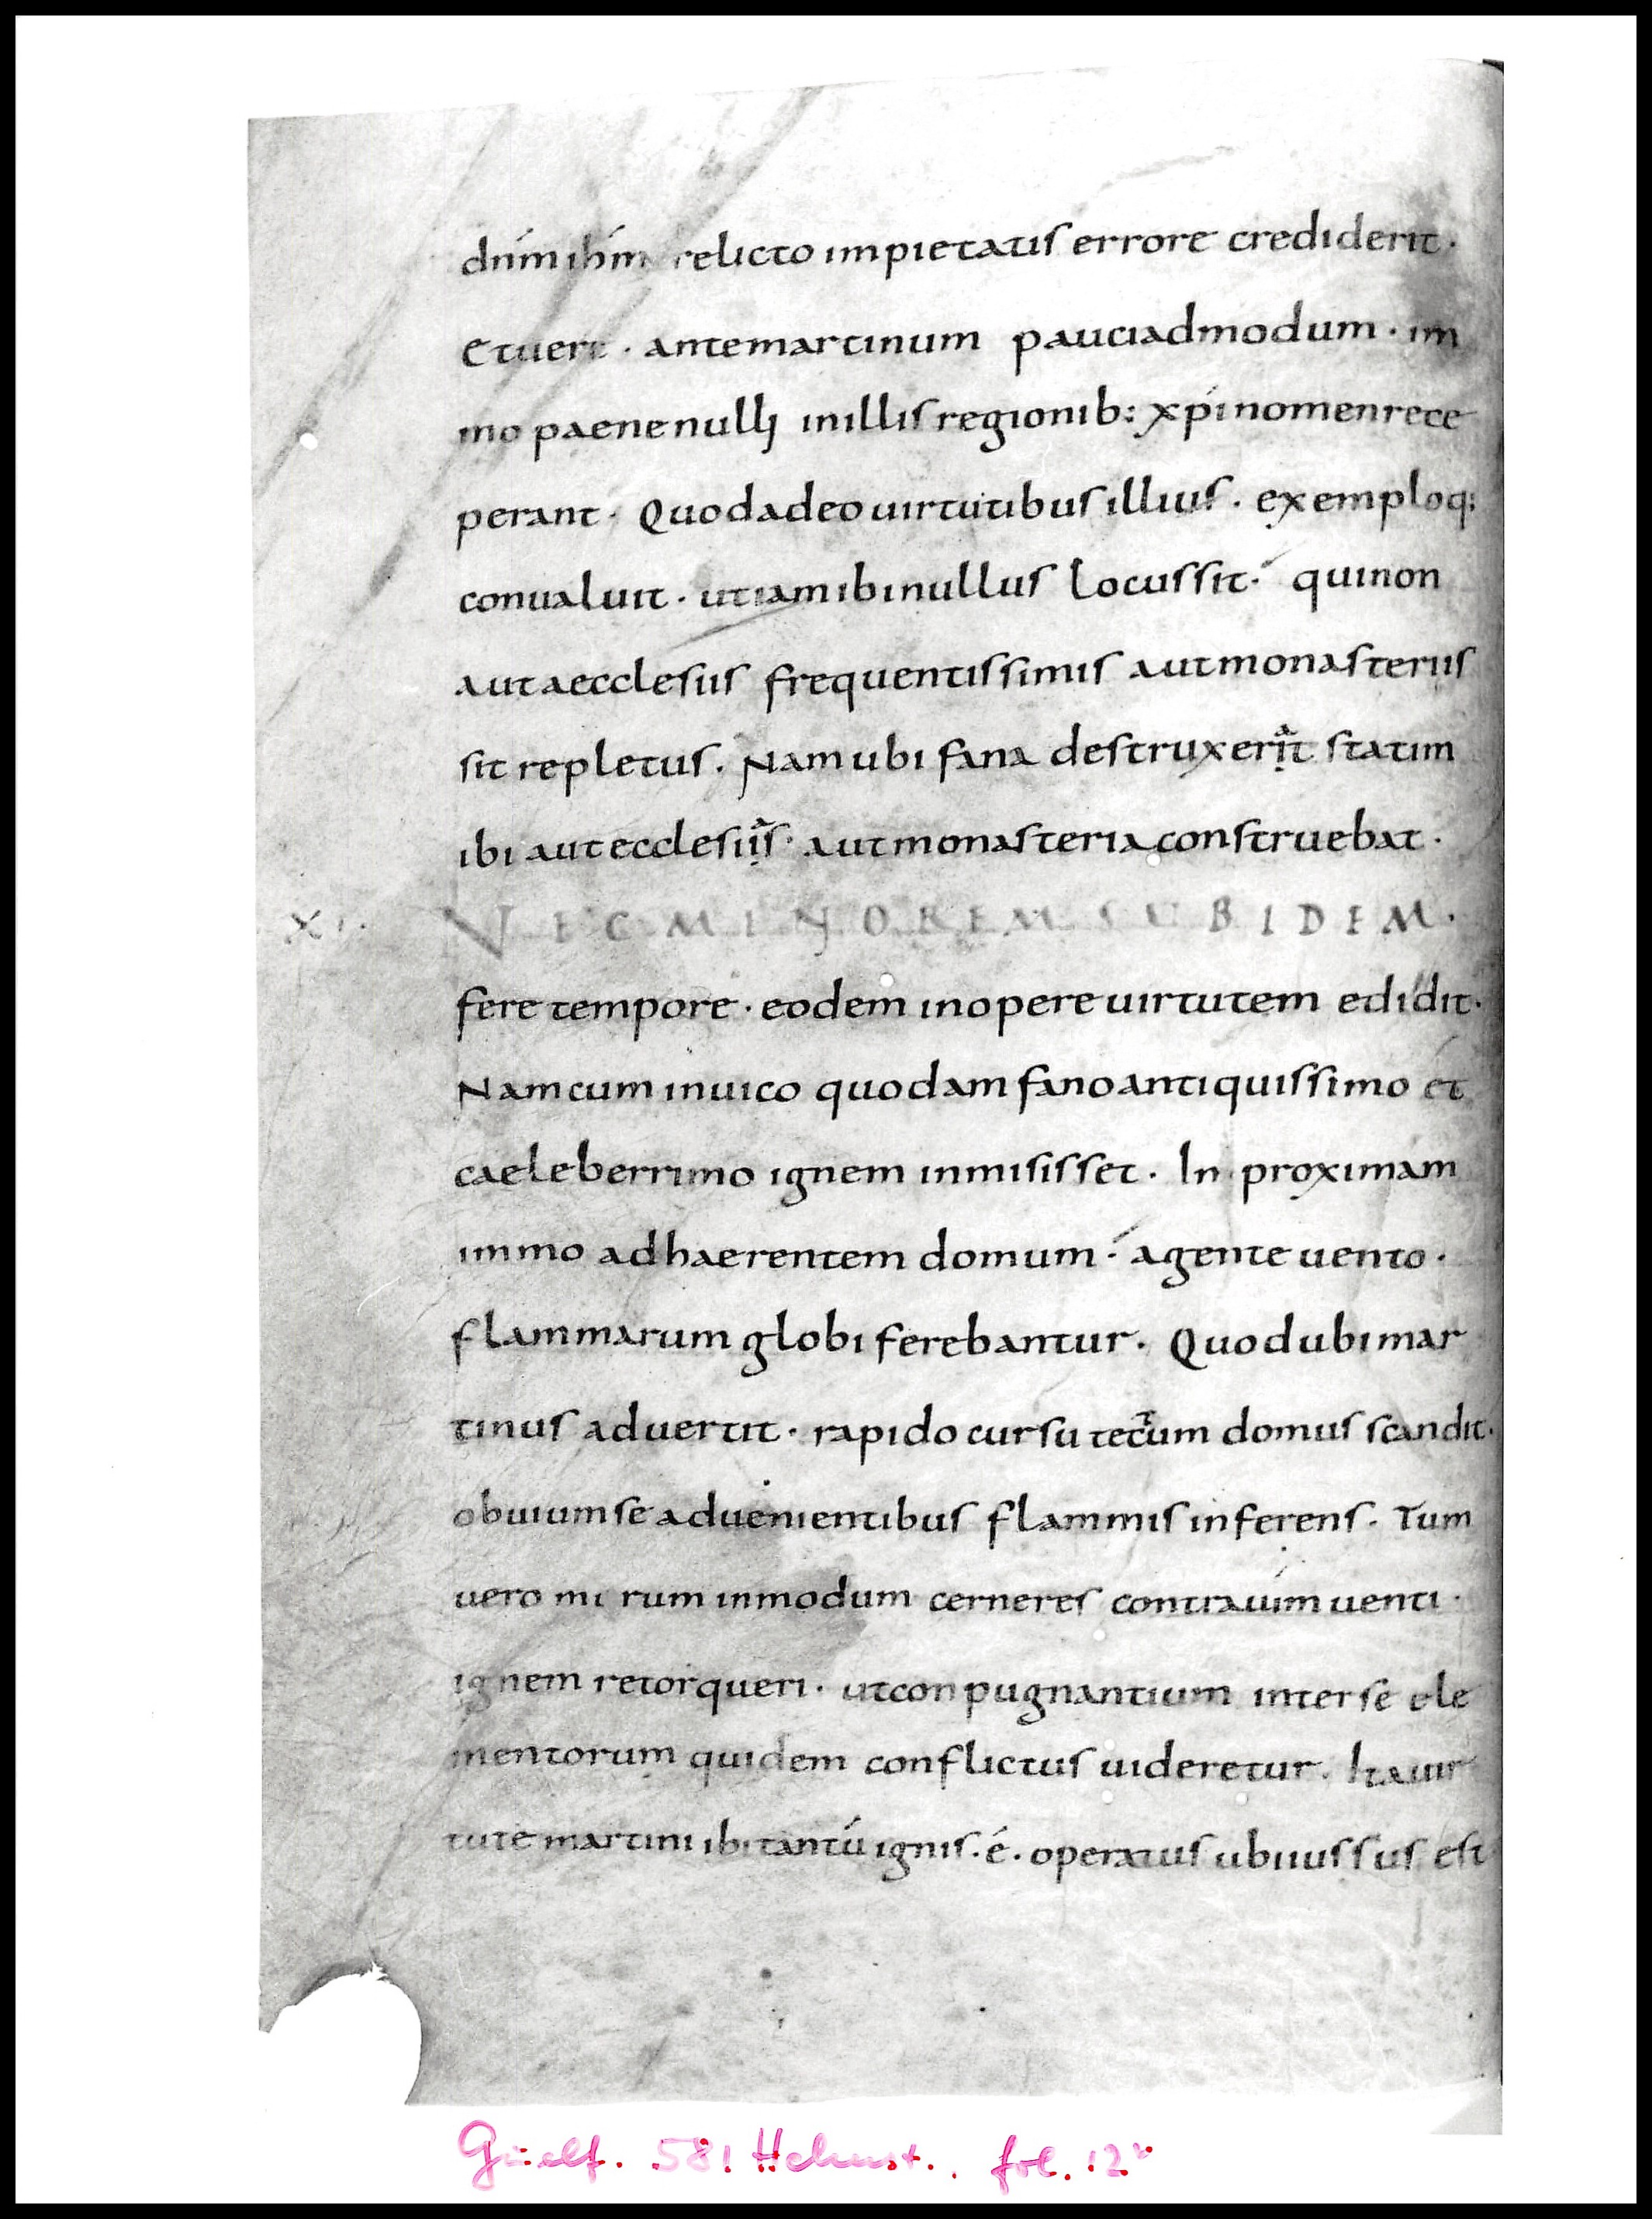 dn̄m ihm̄ relicto impietatis errore crediderit·
Et vere · ante martinum pauci admodum · im
mo paene nulli in illis regionib: xp̄i nomen rece
perant · Quod adeo uirtutibus illius · exemploq;
conualuit · ut iam ibi nullus locus sit · qui non
aut aecclesiis frequentissimis aut monasteriis
sit repletus. Nam ubi fana destruxerit statim
ibi aut ecclesiis · aut monasteria construebat ·
XI. NEC MINOREM SUB IDEM·
fere tempore · eodem in opere uirtutem edidit·
Nam cum in uico quodam fano antiquissimo et
caeleberrimo ignem inmisisset · In proximam
immo adhaerentem domum · agente uento ·
flammarum globi ferebantur · Quod ubi mar
tinus aduertit · rapido cursu tectum domus scandit·
obuium se aduenientibus flammis inferens · Tum
uero mirum in modum cerneres contra uim uenti ·
ignem retorqueri · ut conpugnantium inter se ele
mentorum quidem conflictus uideretur. Ita uir
tute martini ibi tantū ignis · é · operatus ubi iussus est
Guelf. 581 Helmst. fol. 12v